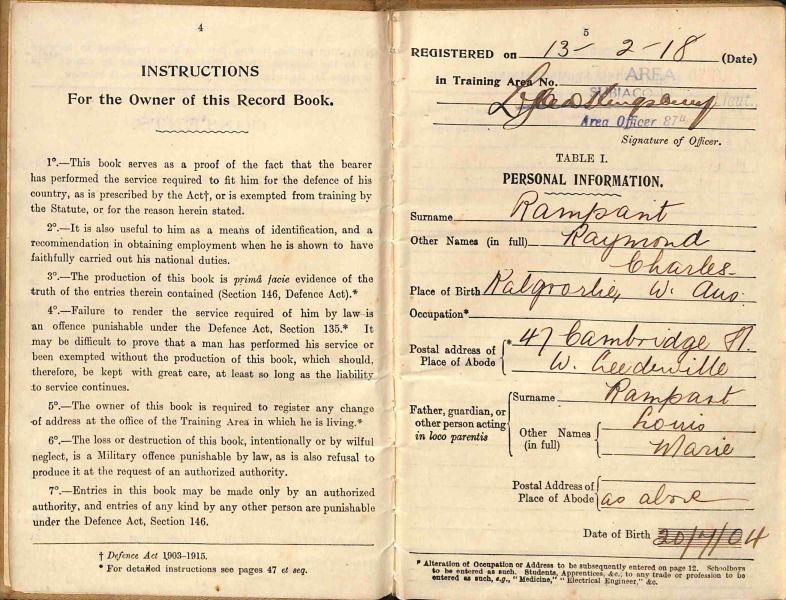 4
INSTRUCTIONS
For the Owner of this Record Book.
1°.—This book serves as a proof of the fact that the bearer
has performed the service required to fit him for the defence of his
country, as is prescribed by the Act†, or is exempted from training by
the Statute, or for the reason herein stated.
2°.—It is also useful to him as a means of identification, and a
recommendation in obtaining employment when he is shown to have
faithfully carried out his national duties.
3°.—The production of this book is primâ facie evidence of the
truth of the entries therein contained (Section 146, Defence Act).*
4°.—Failure to render the service required of him by law is
an offence punishable under the Defence Act, Section 135.* It
may be difficult to prove that a man has performed his service or
been exempted without the production of this book, which should,
therefore, be kept with great care, at least so long as the liability
to service continues.
5°.—The owner of this book is required to register any change
of address at the office of the Training Area in which he is living.*
6°.—The loss or destruction of this book, intentionally or by wilful
neglect, is a Military offence punishable by law, as is also refusal to
produce it at the request of an authorized authority.
7°.—Entries in this book may be made only by an authorized
authority, and entries of any kind by any other person are punishable
under the Defence Act, Section 146.
† Defence Act 1903-1915.
* For detailed instructions see pages 47 et seq.
5
REGISTERED on 13-2-18 (Date)
in Training Area No. AREA
SUBIACO
Lieut.
Area Officer 87B
Signature of Officer.
TABLE I.
PERSONAL INFORMATION.
Surname Rampant
Other Names (in full) Raymond
Charles
Place of Birth Kalgoorlie, W. Aus.
Occupation*
Postal address of Place of Abode * 47 Cambridge St.
W. Leederville
Father, guardian, or other person acting in loco parentis
Surname Rampant
Other Names (in full) Louis
Marie
Postal Address of Place of Abode as above
Date of Birth 04
* Alteration of Occupation or Address to be subsequently entered on page 12. Schoolboys
to be entered as such. Students, Apprentices, &c., to any trade or profession to be
entered as such, e.g., "Medicine," "Electrical Engineer," &c.